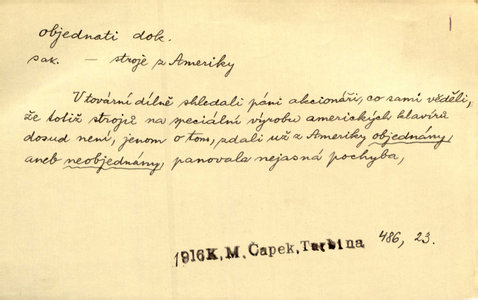 objednati dok.
sak. – stroje z Ameriky
V tovární dílně shledali páni akcionáři, co sami věděli,
že totiž strojů na speciální výrobu amerických klavírů
dosud není, jenom o tom, zdali už z Ameriky objednány,
aneb neobjednány, panovala nejasná pochyba,
1916 K. M. Čapek, Turbina 486, 23.